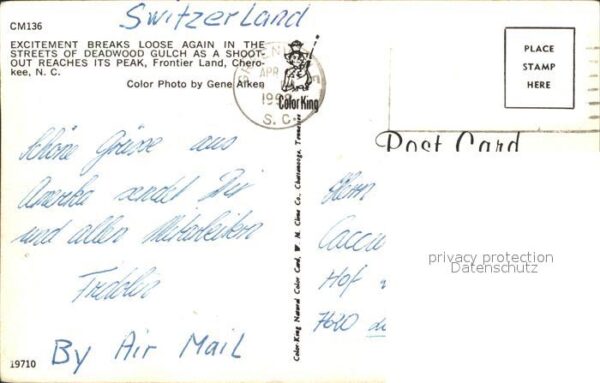 Switzerland
CM136
EXCITEMENT BREAKS LOOSE AGAIN IN THE
STREETS OF DEADWOOD GULCH AS A SHOOT-
OUT REACHES ITS PEAK, Frontier Land, Chero-
kee, N. C.
Color Photo by Gene Aiken
APR
S. C.
Color King
PLACE
STAMP
HERE
Post Card
Schöne Grüsse aus
Amerika sendet Dir
und allen Mitarbeitern
By Air Mail
19710
Color-King Natural Color Card, W. M. Cline Co., Chattanooga, Tennessee
Herrn
Hof
privacy protection
Datenschutz